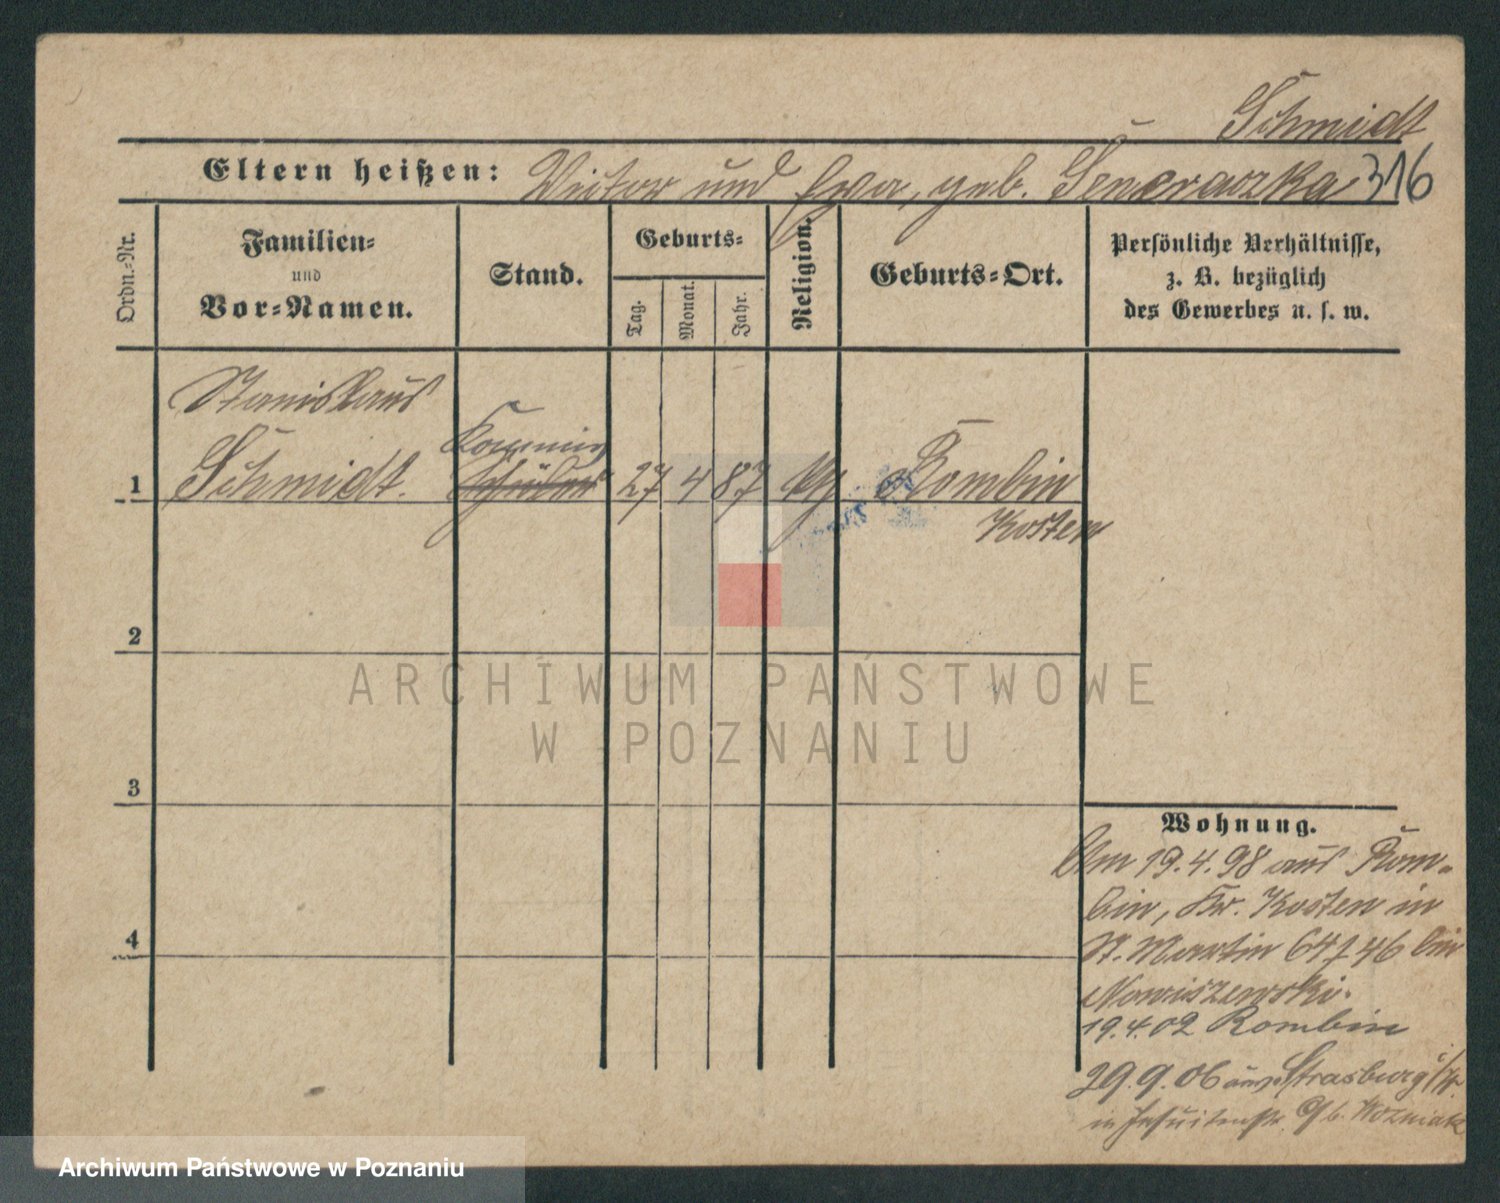 Schmidt
Eltern heißen: Victor und Eva, geb. Sencraszka 316
Ordn.-Nr.
Familien-
und
Vor-Namen.
Stand.
Geburts-
Tag.
Monat.
Jahr.
Religion.
Geburts-Ort.
Persönliche Verhältnisse,
z. B. bezüglich
des Gewerbes u. s. w.
Stanislaus
Kommis
1 Schmidt. Schüler 27 4 87 Rombin
Kosten
2
ARCHIWUM PAŃSTWOWE
W POZNANIU
3
4
Wohnung.
Am 19.4.98 aus Rom-
bin, Kr. Kosten in
St. Martin 64 bei
19.4.02 Rombin
29.9.06 aus Strasburg
in Jesuitenstr. b. Wozniak
Archiwum Państwowe w Poznaniu